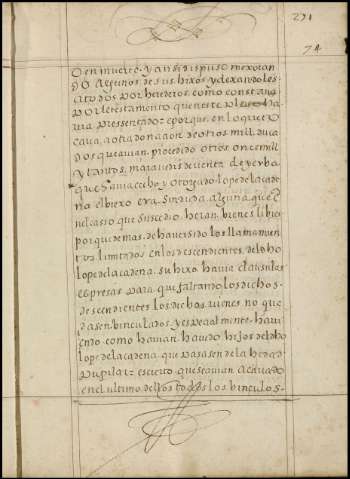 271
74
o en muerto. y ansi dispuso mexoran
do Algunos de sus hixos y dexandoles
Atodos por herederos, como constava
por el testamento que neste pleito ha
via pressentado: e porque, en lo que to
cava, a otra donaçion de otros mill duca
dos que avian, procedido otros, once mill
y tantos, maravedis de renta de yerba
que havia echo y otorgado lope de la cade
na el biexo era sin duda alguna que e
nel casso que sucedio heran, bienes libres
porque demas, de haver sido los llamamien
tos limitados en los descendientes, del dho
lope de la cadena, su hixo havia clausulas
espresas para que faltando los dichos
descendientes los dichos, vienes no que
dasen binculados, y espeçialmente. havi
endo como havian, havido hijos del dho
lope de la cadena, que pasasen de la hedad
Pupilar: es cierto, que se avian Acavado
en el ultimo dellos todos los binculos.